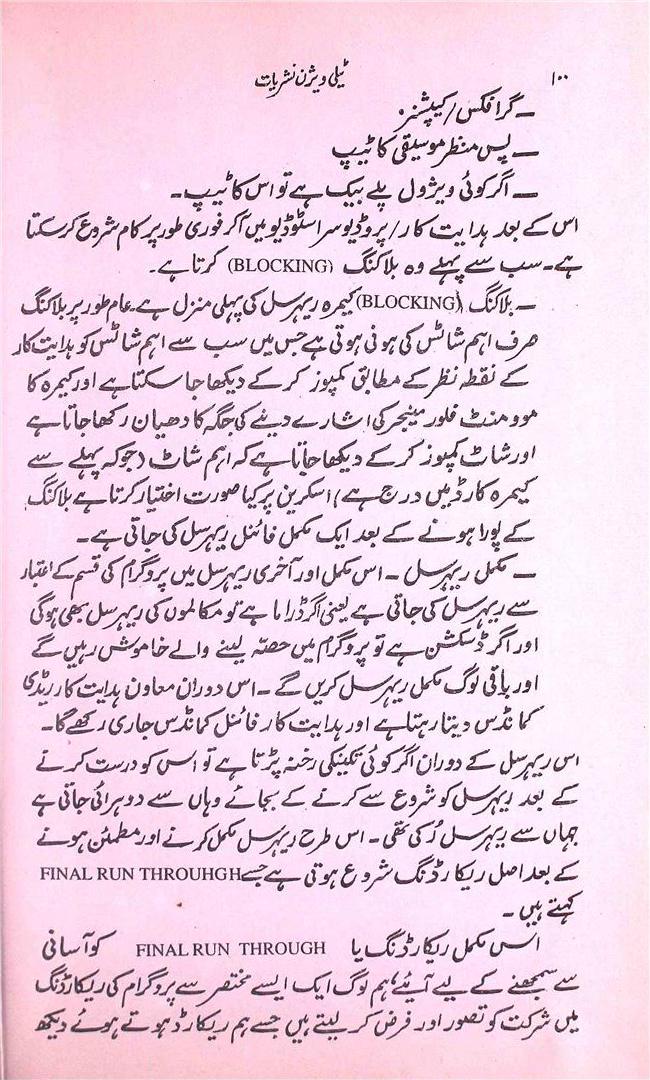 ۱۰۰
ٹیلی ویژن نشریات
ـ گرافکس/کیپشنز.
ـ پس منظر موسیقی کا ٹیپ
ـ اگر کوئی ویژول پلے بیک ہے تو اس کا ٹیپ۔
اس کے بعد ہدایت کار/پروڈیوسر اسٹوڈیو میں آکر فوری طور پر کام شروع کرسکتا
ہے۔ سب سے پہلے وہ بلاکنگ (BLOCKING) کرتا ہے۔
ـ بلاکنگ (BLOCKING) کیمرہ ریہرسل کی پہلی منزل ہے۔ عام طور پر بلاکنگ
صرف اہم شاٹس کی ہونی ہوتی ہے جس میں سب سے اہم شاٹس کو ہدایت کار
کے نقطہ نظر کے مطابق کمپوز کر کے دیکھا جا سکتا ہے اور کیمرہ کا
موومنٹ فلور مینیجر کی اشارے دینے کی جگہ کا دھیان رکھا جاتا ہے
اور شاٹ کمپوز کر کے دیکھا جاتا ہے کہ اہم شاٹ (جو کہ پہلے سے
کیمرہ کارڈ میں درج ہے) اسکرین پر کیا صورت اختیار کرتا ہے بلاکنگ
کے پورا ہونے کے بعد ایک مکمل فائنل ریہرسل کی جاتی ہے۔
ـ مکمل ریہرسل ۔ اس مکمل اور آخری ریہرسل میں پروگرام کی قسم کے اعتبار
سے ریہرسل کی جاتی ہے یعنی اگر ڈراما ہے تو مکالموں کی ریہرسل بھی ہوگی
اور اگر ڈسکشن ہے تو پروگرام میں حصّہ لینے والے خاموش رہیں گے
اور باقی لوگ مکمل ریہرسل کریں گے ۔ اس دوران معاون ہدایت کار ریڈی
کمانڈس دیتا رہتا ہے اور ہدایت کار فائنل کمانڈس جاری رکھے گا۔
اس ریہرسل کے دوران اگر کوئی تکینکی رخنہ پڑتا ہے تو اس کو درست کرنے
کے بعد ریہرسل کو شروع سے کرنے کے بجائے وہاں سے دوہرائی جاتی ہے
جہاں سے ریہرسل رُکی تھی ۔ اس طرح ریہرسل مکمل کرنے اور مطمئن ہونے
کے بعد اصل ریکارڈنگ شروع ہوتی ہے جسے FINAL RUN THROUHGH
کہتے ہیں ۔
اس مکمل ریکارڈنگ یا FINAL RUN THROUGH کو آسانی
سے سمجھنے کے لیے آئیے ہم لوگ ایک ایسے مختصر سے پروگرام کی ریکارڈنگ
میں شرکت کو تصور اور فرض کر لیتے ہیں جسے ہم ریکارڈ ہوتے ہوئے دیکھ